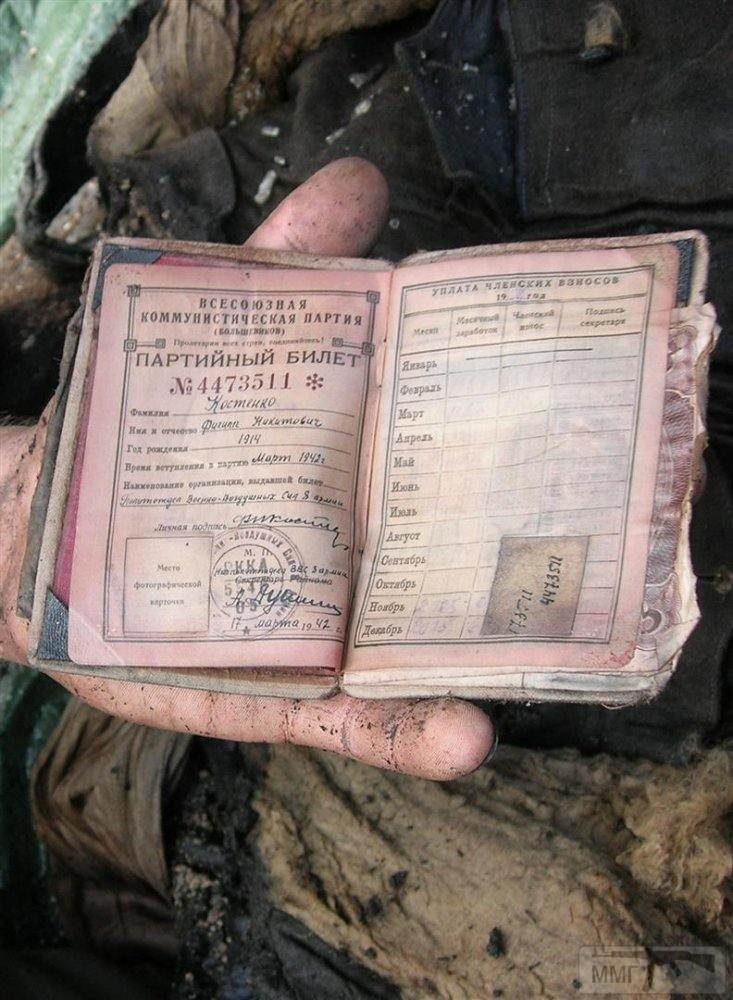 ВСЕСОЮЗНАЯ
КОММУНИСТИЧЕСКАЯ ПАРТИЯ
(БОЛЬШЕВИКОВ)
Пролетарии всех стран, соединяйтесь!
ПАРТИЙНЫЙ БИЛЕТ
№ 4473511 *
Фамилия Костенко
Имя и отчество Филипп Никитович
Год рождения 1914
Время вступления в партию Март 1942г
Наименование организации, выдавшей билет
Политотдел Военно-Воздушных Сил 8 армии
Личная подпись
М. П.
ВВС 8 армии
Секретарь Райкома
РККА
Место
фотографической
карточки
17 марта 1942 г.
УПЛАТА ЧЛЕНСКИХ ВЗНОСОВ
19 год
Месяц
Месячный заработок
Членский взнос
Подпись секретаря
Январь
Февраль
Март
Апрель
Май
Июнь
Июль
Август
Сентябрь
Октябрь
Ноябрь
Декабрь
4473511
ММГ